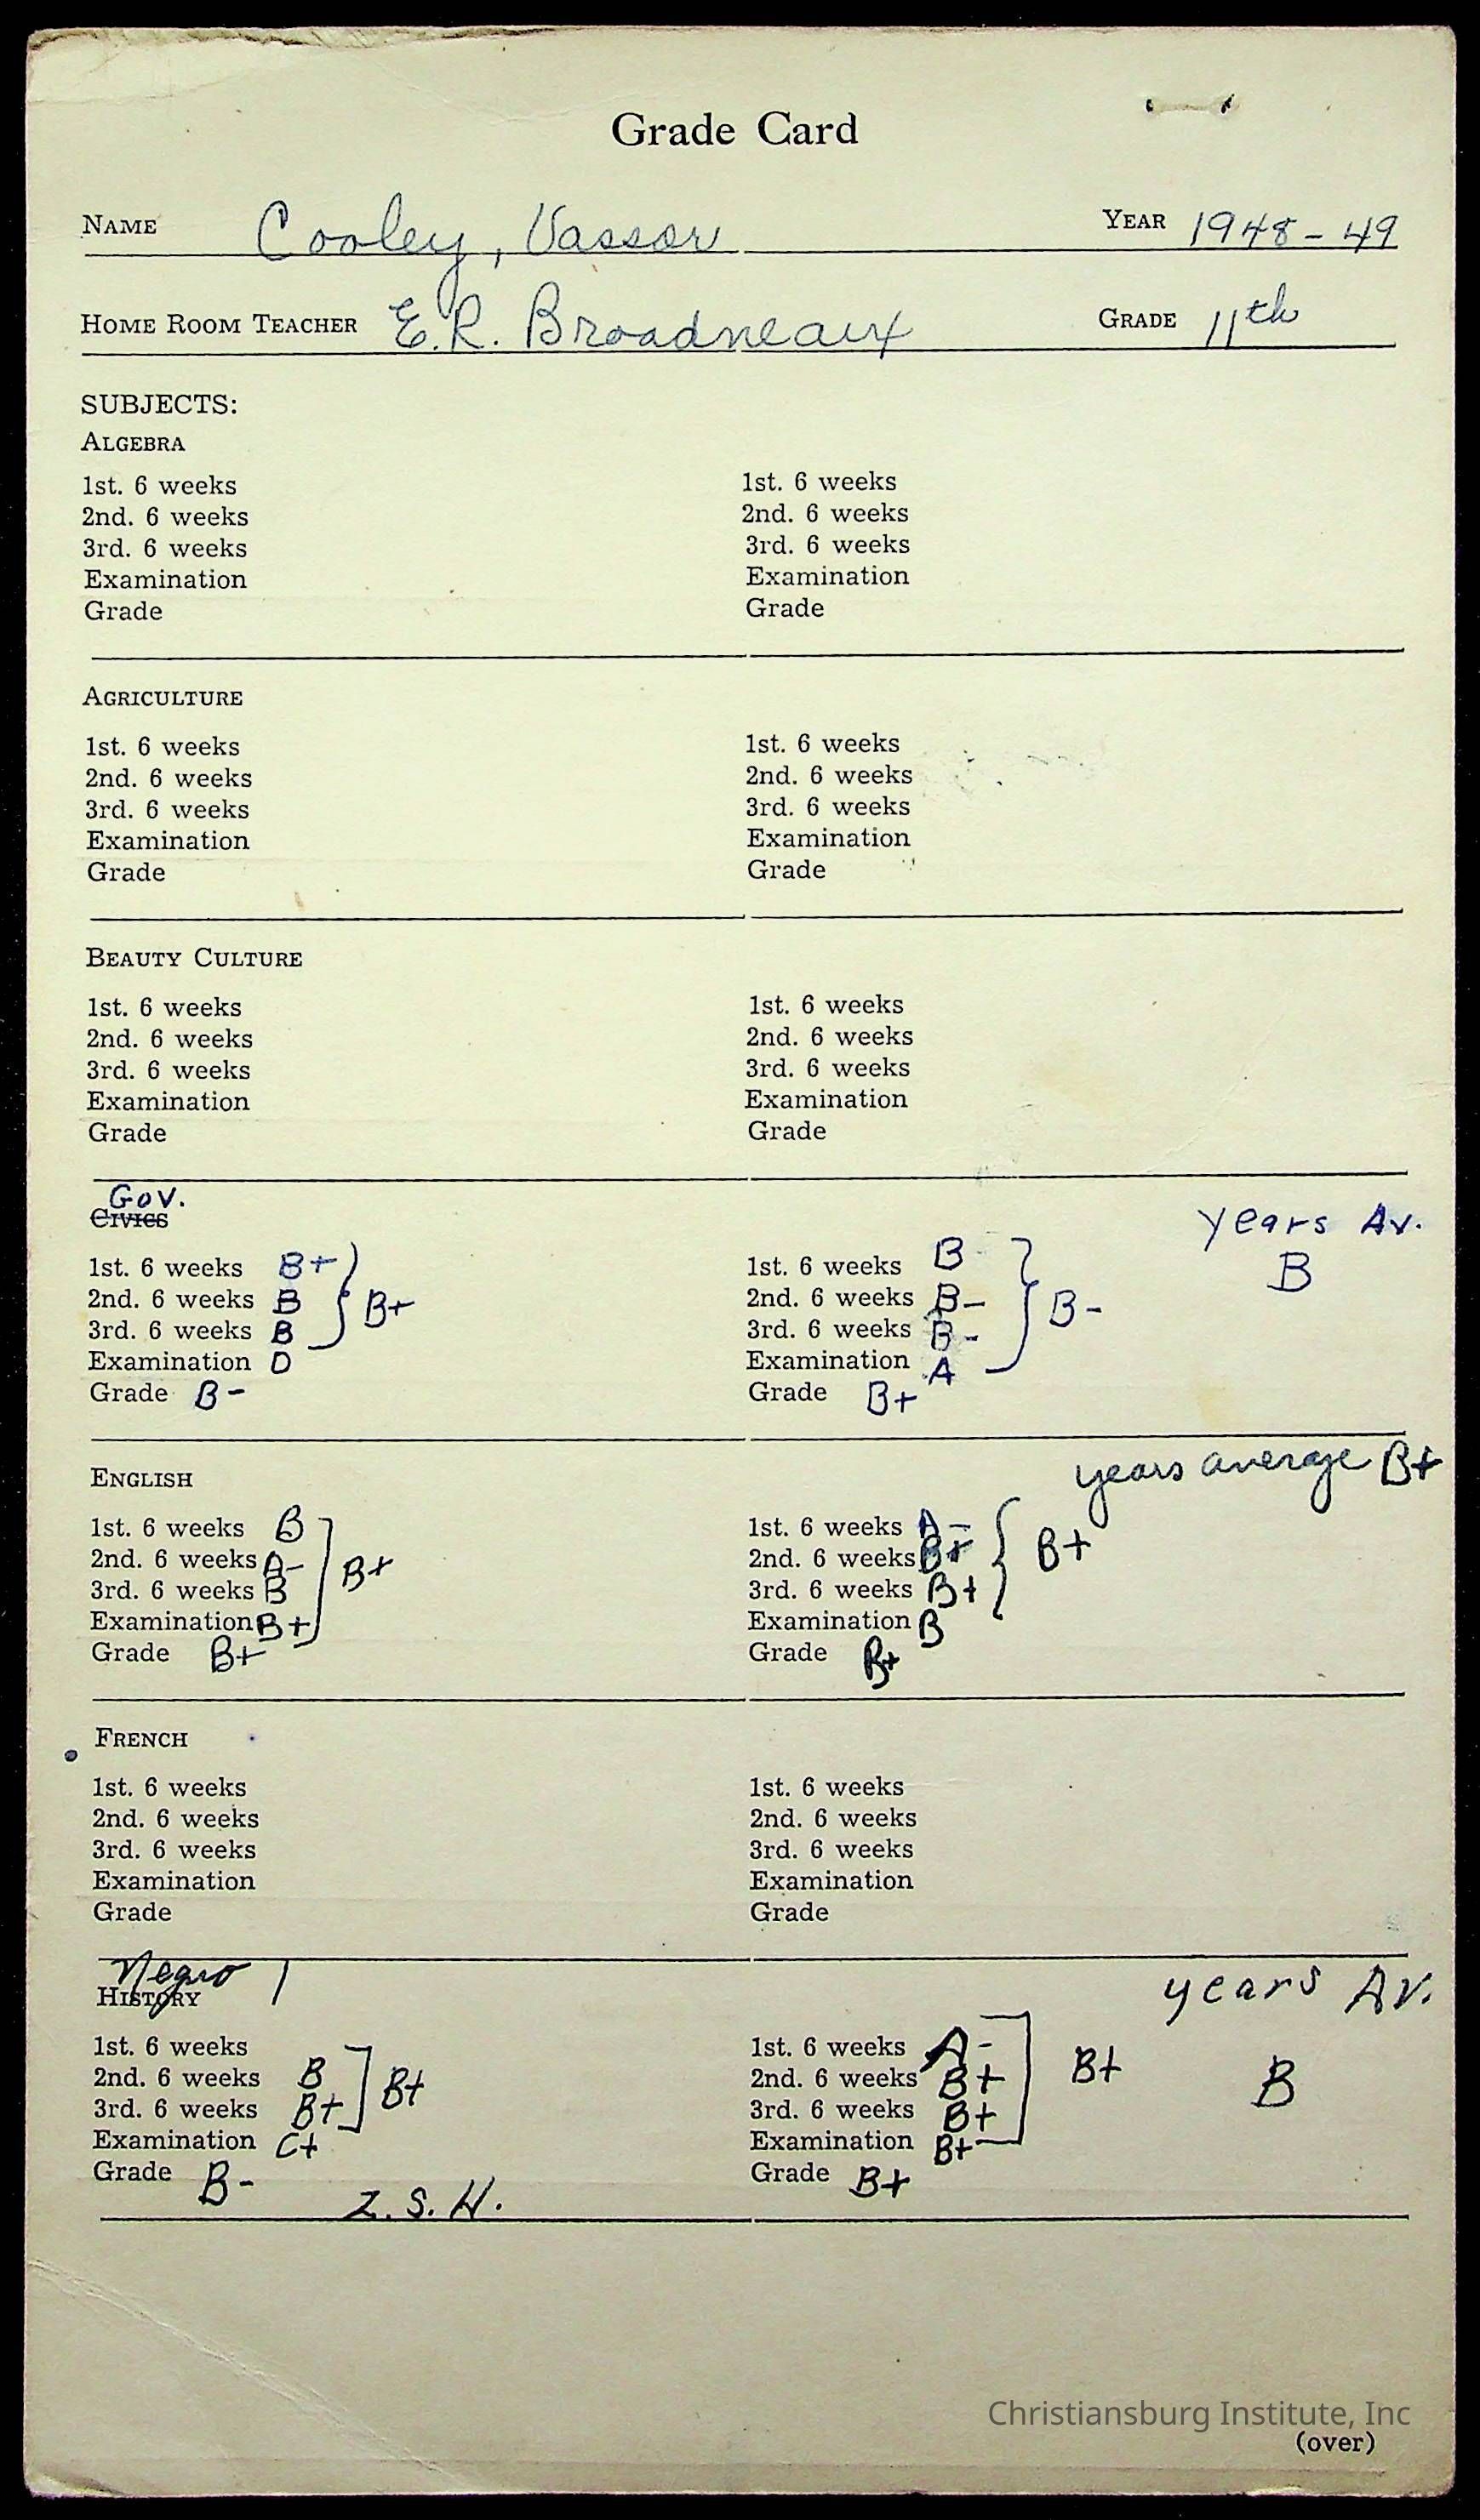 Grade Card
NAME Cooley, Vassor YEAR 1948-49
HOME ROOM TEACHER E.R. Broadneaux GRADE 11th
SUBJECTS:
ALGEBRA
1st. 6 weeks 1st. 6 weeks
2nd. 6 weeks 2nd. 6 weeks
3rd. 6 weeks 3rd. 6 weeks
Examination Examination
Grade Grade
AGRICULTURE
1st. 6 weeks 1st. 6 weeks
2nd. 6 weeks 2nd. 6 weeks
3rd. 6 weeks 3rd. 6 weeks
Examination Examination
Grade Grade
BEAUTY CULTURE
1st. 6 weeks 1st. 6 weeks
2nd. 6 weeks 2nd. 6 weeks
3rd. 6 weeks 3rd. 6 weeks
Examination Examination
Grade Grade
Gov.
CIVICS years Av.
1st. 6 weeks B+ 1st. 6 weeks B B
2nd. 6 weeks B B+ 2nd. 6 weeks B- B-
3rd. 6 weeks B 3rd. 6 weeks B-
Examination D Examination A
Grade B- Grade B+
ENGLISH years average B+
1st. 6 weeks B 1st. 6 weeks A-
2nd. 6 weeks A- B+ 2nd. 6 weeks B+ B+
3rd. 6 weeks B 3rd. 6 weeks B+
Examination B+ Examination B
Grade B+ Grade B+
FRENCH
1st. 6 weeks 1st. 6 weeks
2nd. 6 weeks 2nd. 6 weeks
3rd. 6 weeks 3rd. 6 weeks
Examination Examination
Grade Grade
Negro
HISTORY years Av.
1st. 6 weeks 1st. 6 weeks A-
2nd. 6 weeks B B+ 2nd. 6 weeks B+ B+ B
3rd. 6 weeks B+ 3rd. 6 weeks B+
Examination C+ Examination B+
Grade B- Grade B+
Z.S.H.
Christiansburg Institute, Inc
(over)